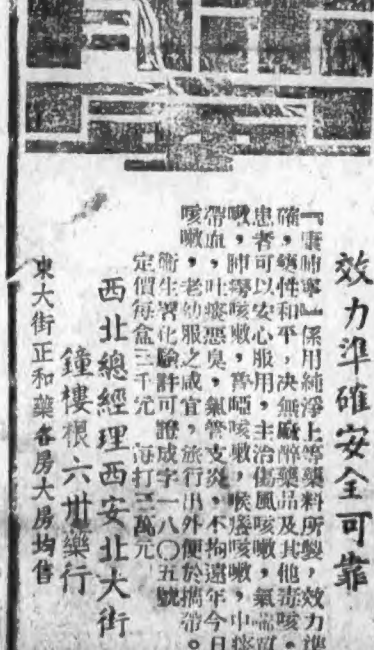 效力準確安全可靠
『康肺寧』係用純淨上等藥料所製，效力準
確，藥性和平，決無麻醉藥品及其他毒
患者可以安心服用，主治傷風咳嗽，氣喘
嗽，肺癆咳嗽，音啞咳嗽，喉癢咳嗽，中痰
帶血，吐痰惡臭，氣管支炎，不拘遠年今日
咳嗽，老幼服之咸宜，旅行出外便於攜帶。
衛生署化驗許可證成字一八〇五號
定價每盒三千元 每打三萬元
西北總經理西安北大街
鐘樓根六卅藥行
東大街正和藥各房大房均售